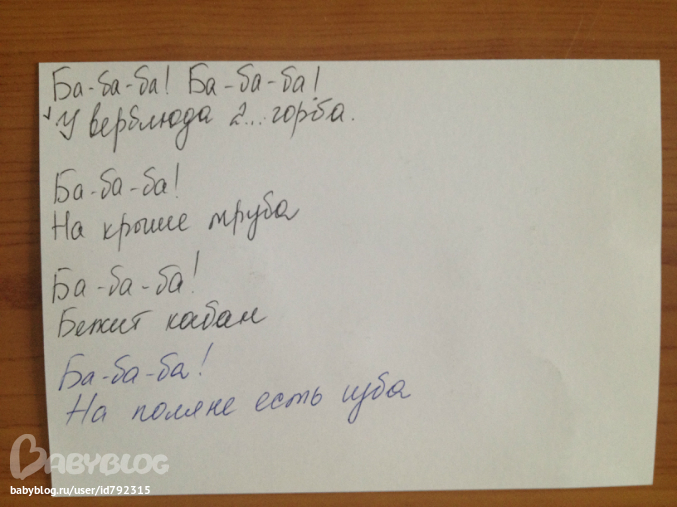 Ба-ба-ба! Ба-ба-ба!
У верблюда 2... горба.
Ба-ба-ба!
На крыше труба
Ба-ба-ба!
Бежит кабан
Ба-ба-ба!
На поляне есть изба
BABYBLOG
babyblog.ru/user/id792315